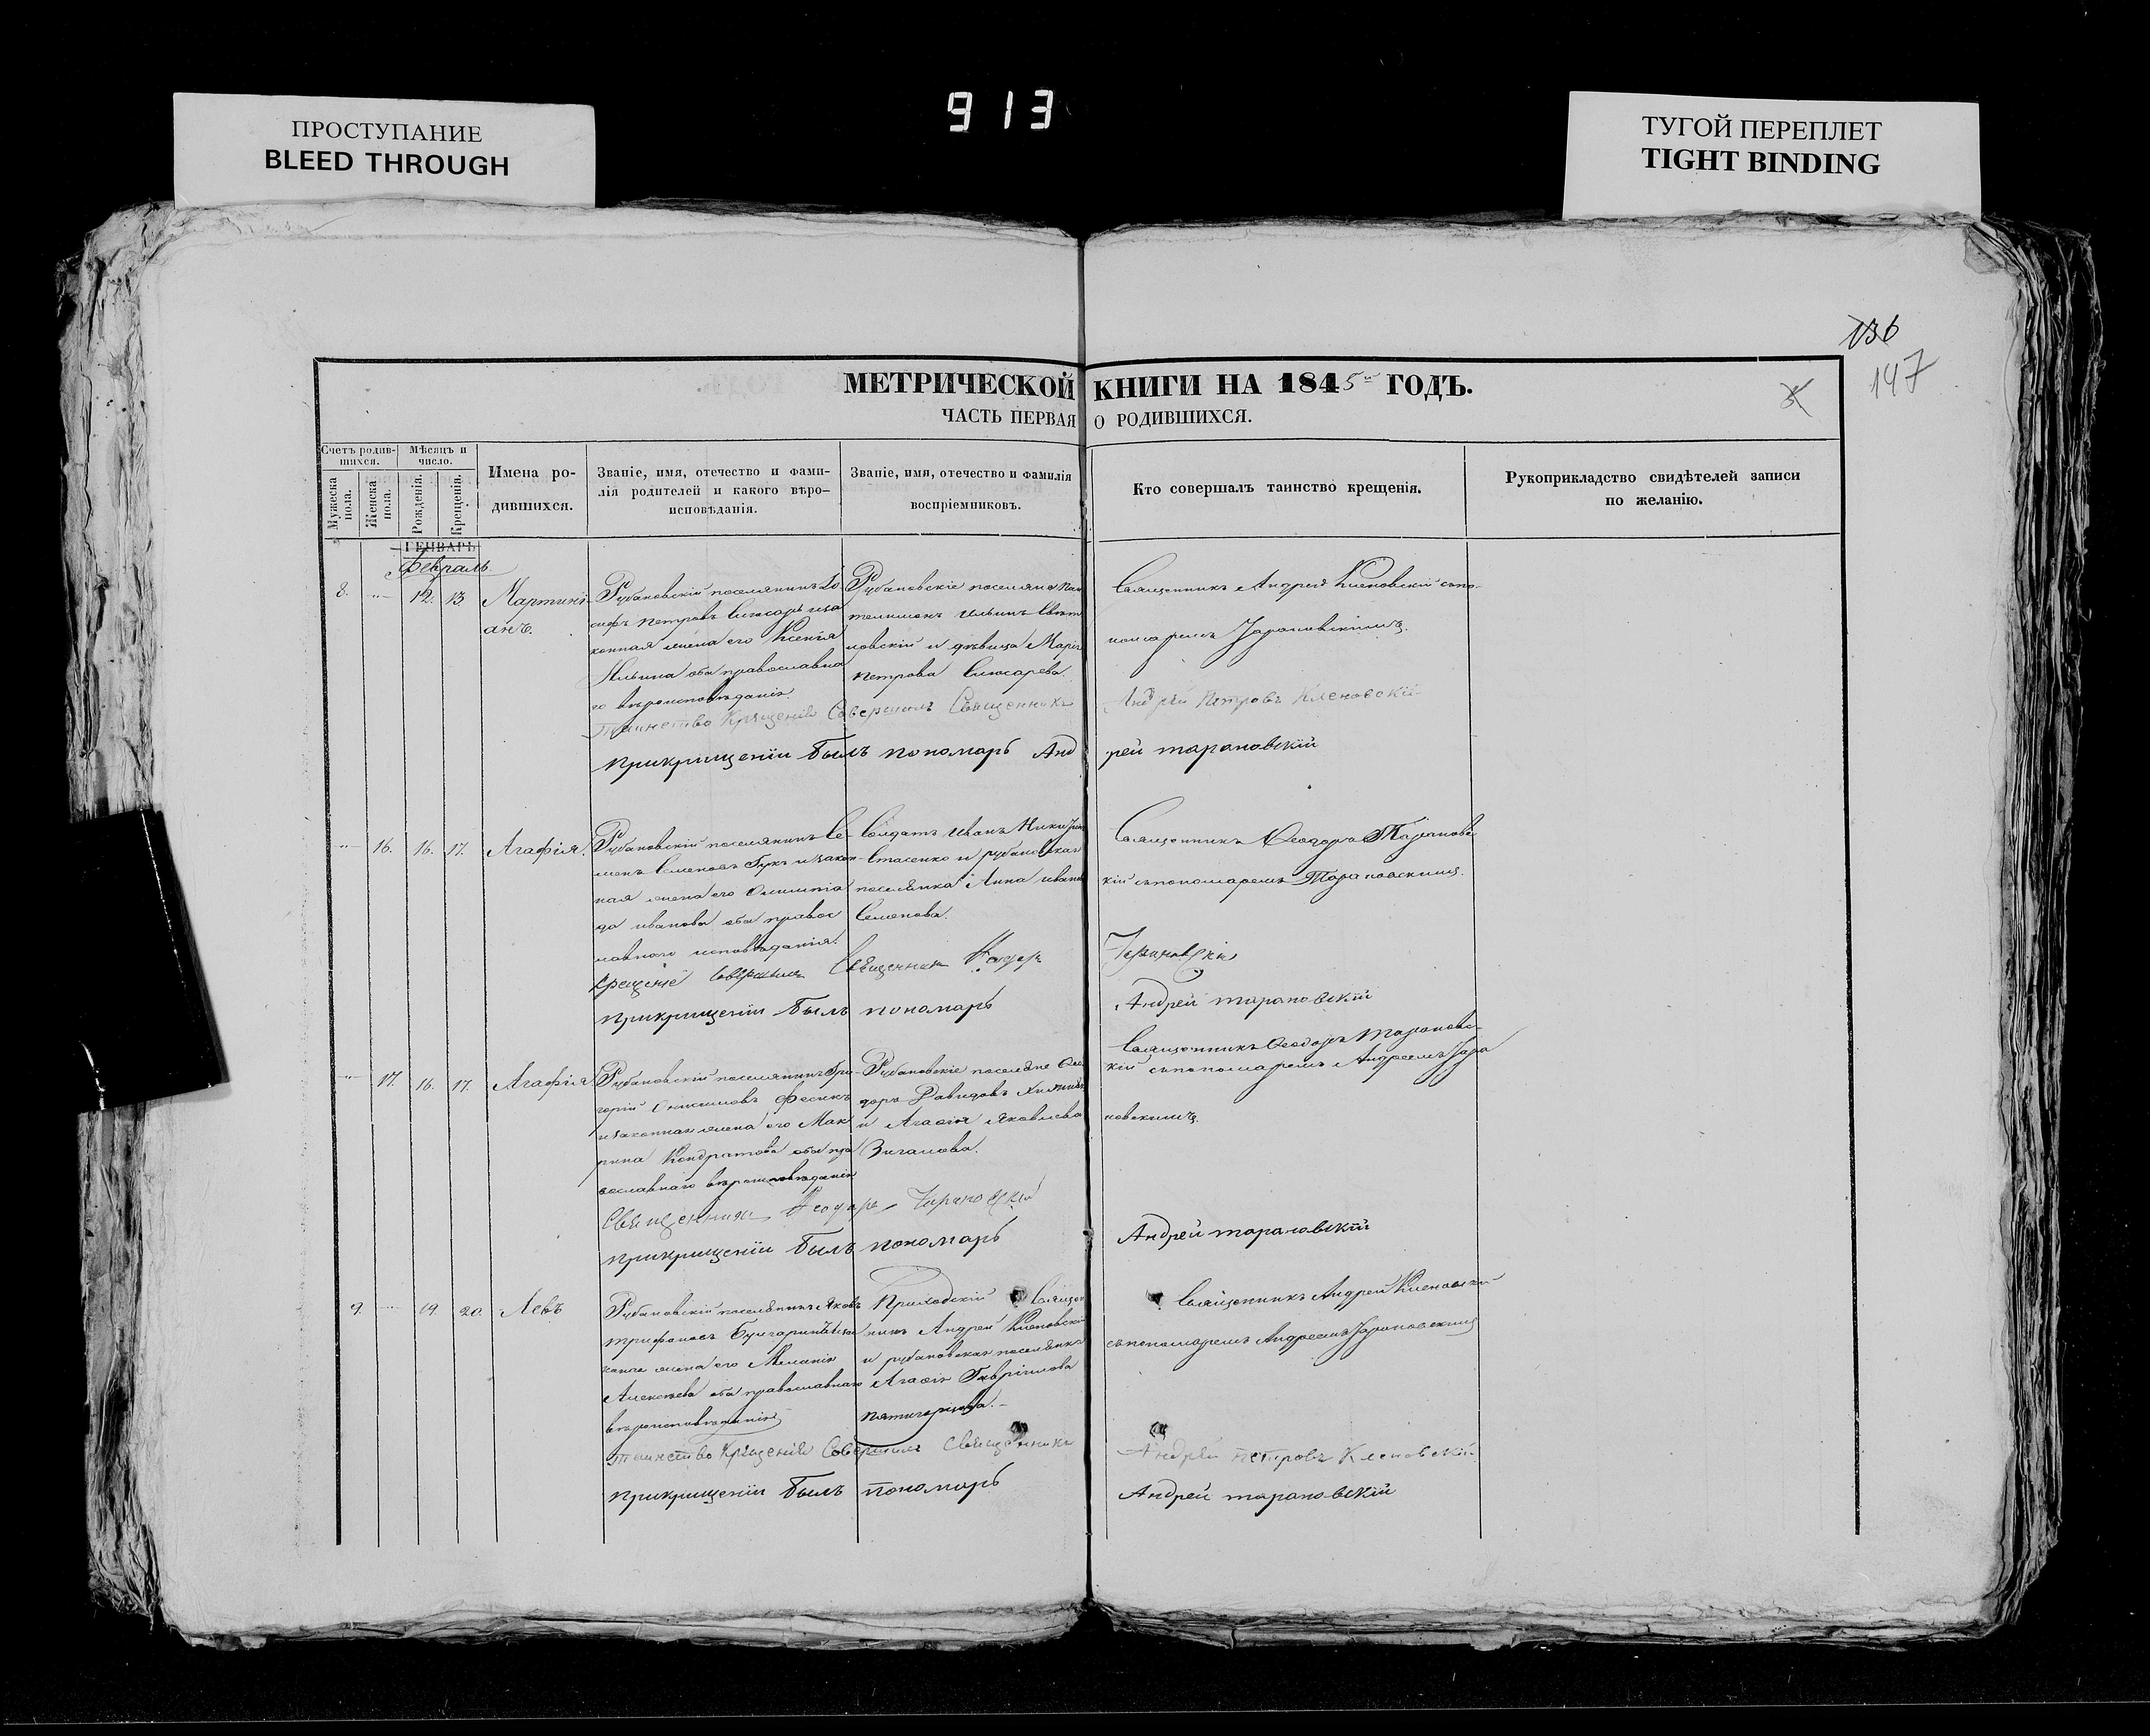 913
ПРОСТУПАНИЕ
BLEED THROUGH
ТУГОЙ ПЕРЕПЛЕТ
TIGHT BINDING
136
147
МЕТРИЧЕСКОЙ КНИГИ НА 1845й ГОДЪ.
ЧАСТЬ ПЕРВАЯ О РОДИВШИХСЯ.
Счетъ родив-
шихся.
Мужеска пола.
Женска пола.
Мѣсяцъ и
число.
Рожденія.
Крещенія.
Имена ро-
дившихся.
Званіе, имя, отечество и фами-
лія родителей и какого вѣро-
исповѣданія.
Званіе, имя, отечество и фамилія
воспріемниковъ.
Кто совершалъ таинство крещенія.
Рукоприкладство свидѣтелей записи
по желанію.
ГЕНВАРЬ
Февраль
8. 12. 13.
Мартини-
анъ.
Рубановскій поселянинъ Іо
сифъ Петровъ Слюсарь и за
конная жена его Ксенія
Ильина оба православна
го вѣроисповѣданія.
Рубановскіе поселяне Пан
телимонъ Ильинъ
новскій и дѣвица Марія
Петрова Слюсарева.
Священникъ Андрей Кленовскій съ по-
номаремъ Тарановскимъ.
Таинство Крещенія Совершилъ Священникъ Андрей Петровъ Кленовскій
прикрищеніи былъ пономарь Анд рей тарановскій
16. 16. 17.
Агафія.
Рубановскій поселянинъ Се-
менъ Семеновъ Гукъ и закон-
ная жена его Олимпіа
да иванова оба правос
лавного исповѣданія.
Солдатъ Иванъ
Стасенко и рубановская
поселянка Анна иванова
Семенова.
Священникъ Ѳеодоръ Тарановс-
кій съ пономаремъ Тарановскимъ.
крещеніе совершилъ Священникъ Ѳеодоръ Тарановскій
прикрищеніи былъ пономарь Андрей тарановскій
17. 16. 17.
Агафія
Рубановскій поселянинъ Гри-
горій Онисимовъ Фесикъ
и законная жена его Мак
рина Кондратова оба пра
вославнаго вѣроисповѣданія
Рубановскіе поселяне Ѳео
доръ Давидовъ
и Агафія Яковлева
Зигалова.
Священникъ Ѳеодоръ Тарановс-
кій съ пономаремъ Андреемъ Тара
новскимъ.
Священникъ Ѳеодоръ Тарановскій
прикрищеніи былъ пономарь Андрей тарановскій
9. 19. 20.
Левъ
Рубановскій поселянинъ Яковъ
Трифоновъ Булгаринъ и за
конна жена его Меланія
Алексѣева оба православнаго
вѣроисповѣданія
Приходскій Священ
никъ Андрей Кленовскій
и рубановская поселянка
Агафія Гаврілова
Пятигорцова.
Священникъ Андрей Кленовскій
съ пономаремъ Андреемъ Тарановскимъ
Таинство Крещенія Совершилъ Священникъ Андрей Петровъ Кленовскій
прикрищеніи былъ пономарь Андрей тарановскій